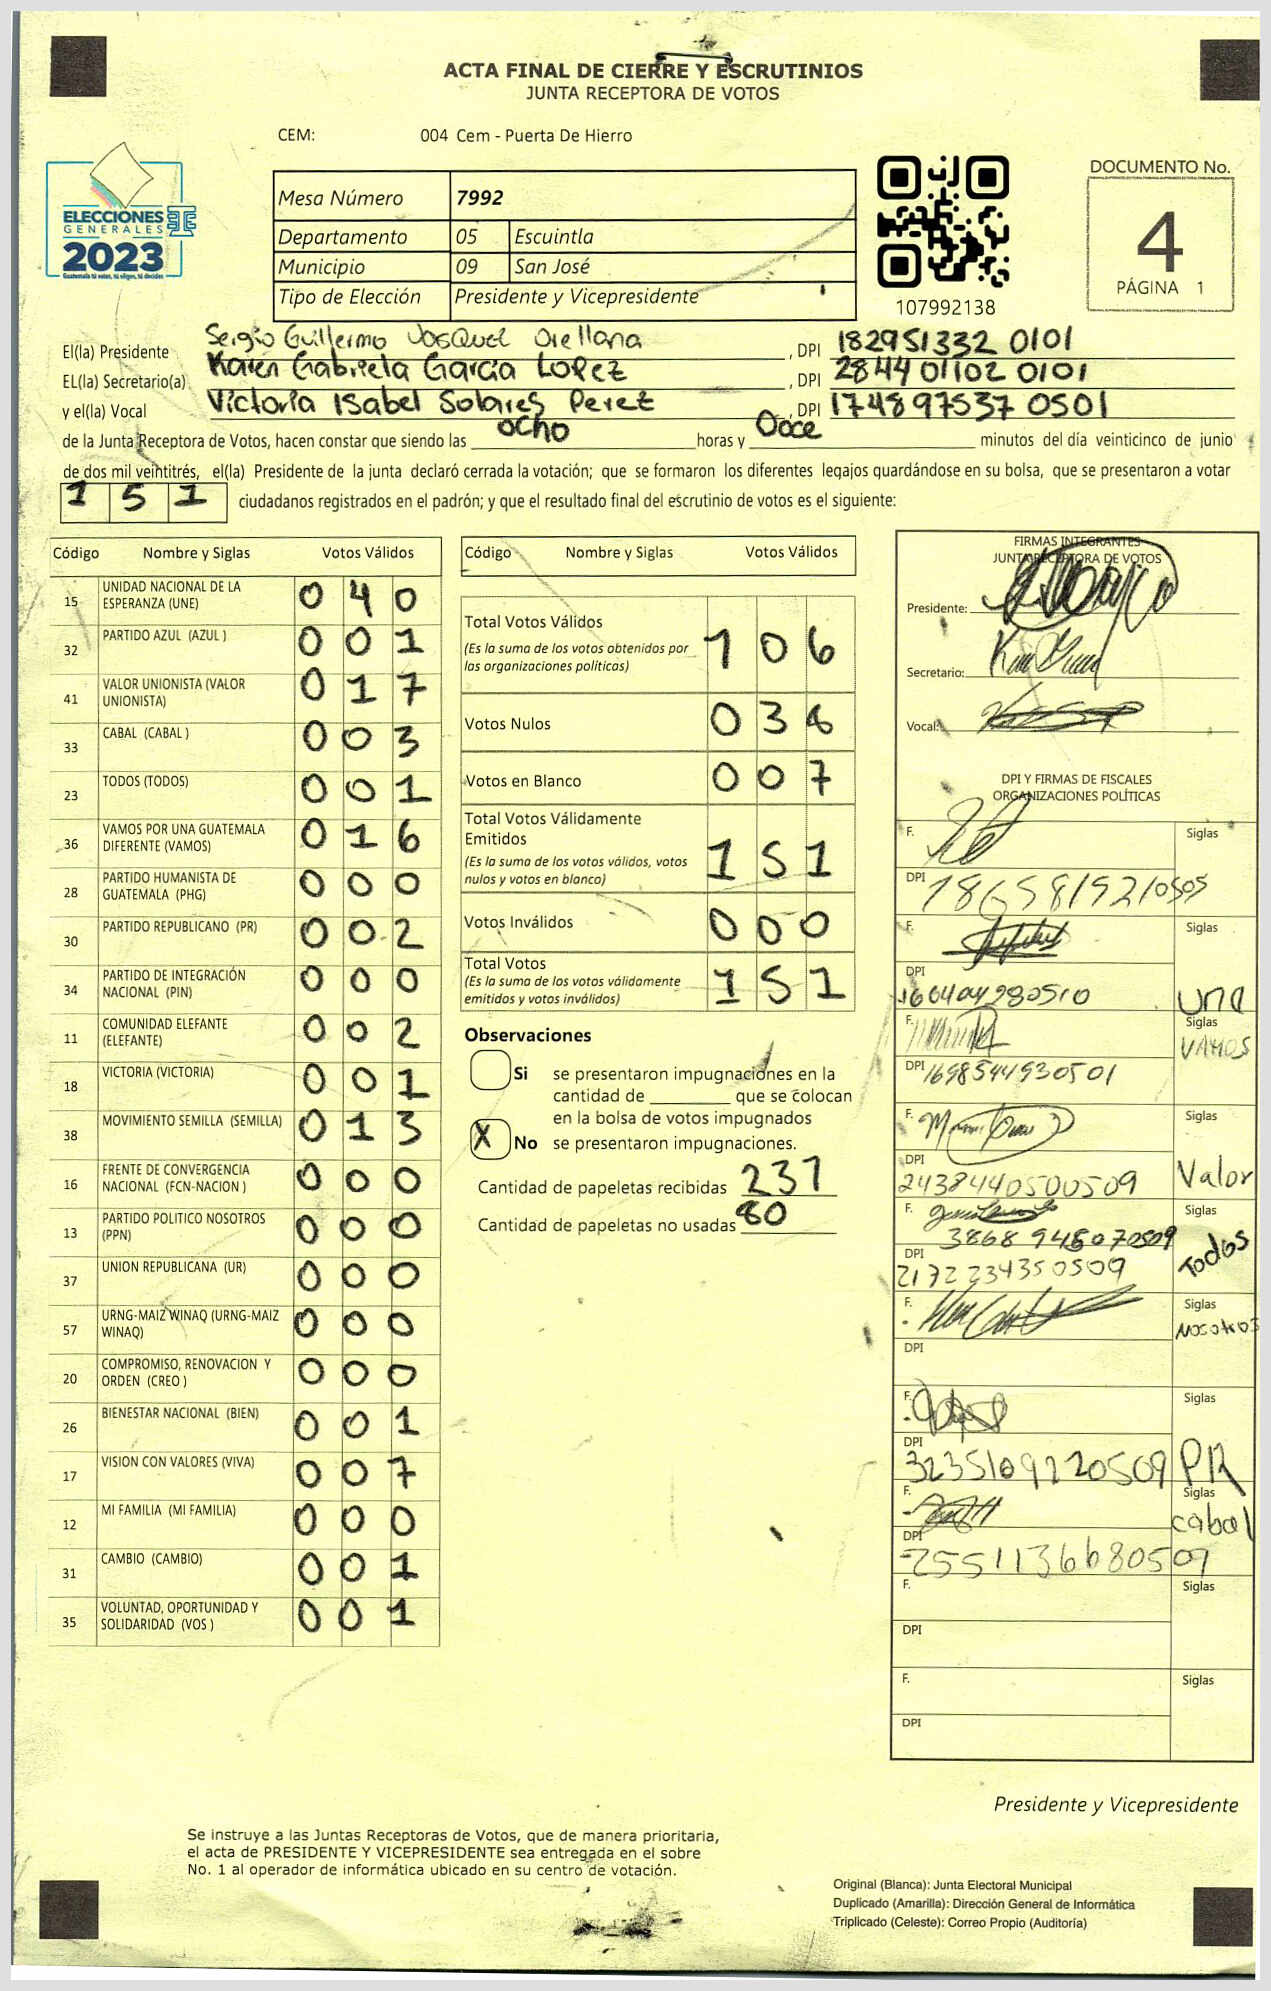 ACTA FINAL DE CIERRE Y ESCRUTINIOS
JUNTA RECEPTORA DE VOTOS
CEM: 004 Cem - Puerta De Hierro
ELECCIONES
GENERALES
2023
Guatemala tú votas, tú eliges, tú decides
Mesa Número 7992
Departamento 05 Escuintla
Municipio 09 San José
Tipo de Elección Presidente y Vicepresidente
107992138
DOCUMENTO No.
4
PÁGINA 1
El(la) Presidente Sergio Guillermo Orellana, DPI 182951332 0101
EL(la) Secretario(a) Karen Gabriela García LOPez, DPI 2844 01102 0101
y el(la) Vocal Victoria ISabel Solares Perez, DPI 174897537 0501
de la Junta Receptora de Votos, hacen constar que siendo las ocho horas y Doce minutos del día veinticinco de junio
de dos mil veintitrés, el(la) Presidente de la junta declaró cerrada la votación; que se formaron los diferentes legajos guardándose en su bolsa, que se presentaron a votar
1 5 1 ciudadanos registrados en el padrón; y que el resultado final del escrutinio de votos es el siguiente:
Código Nombre y Siglas Votos Válidos
15 UNIDAD NACIONAL DE LA ESPERANZA (UNE) 0 4 0
32 PARTIDO AZUL (AZUL ) 0 0 1
41 VALOR UNIONISTA (VALOR UNIONISTA) 0 1 7
33 CABAL (CABAL ) 0 0 3
23 TODOS (TODOS) 0 0 1
36 VAMOS POR UNA GUATEMALA DIFERENTE (VAMOS) 0 1 6
28 PARTIDO HUMANISTA DE GUATEMALA (PHG) 0 0 0
30 PARTIDO REPUBLICANO (PR) 0 0 2
34 PARTIDO DE INTEGRACIÓN NACIONAL (PIN) 0 0 0
11 COMUNIDAD ELEFANTE (ELEFANTE) 0 0 2
18 VICTORIA (VICTORIA) 0 0 1
38 MOVIMIENTO SEMILLA (SEMILLA) 0 1 3
16 FRENTE DE CONVERGENCIA NACIONAL (FCN-NACION ) 0 0 0
13 PARTIDO POLITICO NOSOTROS (PPN) 0 0 0
37 UNION REPUBLICANA (UR) 0 0 0
57 URNG-MAIZ WINAQ (URNG-MAIZ WINAQ) 0 0 0
20 COMPROMISO, RENOVACION Y ORDEN (CREO ) 0 0 0
26 BIENESTAR NACIONAL (BIEN) 0 0 1
17 VISION CON VALORES (VIVA) 0 0 7
12 MI FAMILIA (MI FAMILIA) 0 0 0
31 CAMBIO (CAMBIO) 0 0 1
35 VOLUNTAD, OPORTUNIDAD Y SOLIDARIDAD (VOS ) 0 0 1
Código Nombre y Siglas Votos Válidos
Total Votos Válidos 1 0 6
(Es la suma de los votos obtenidos por
las organizaciones políticas)
Votos Nulos 0 3 8
Votos en Blanco 0 0 7
Total Votos Válidamente
Emitidos 1 5 1
(Es la suma de los votos válidos, votos
nulos y votos en blanco)
Votos Inválidos 0 0 0
Total Votos 1 5 1
(Es la suma de los votos válidamente
emitidos y votos inválidos)
Observaciones
Si se presentaron impugnaciones en la
cantidad de ________ que se colocan
en la bolsa de votos impugnados
X No se presentaron impugnaciones.
Cantidad de papeletas recibidas 231
Cantidad de papeletas no usadas 80
FIRMAS INTEGRANTES
JUNTA RECEPTORA DE VOTOS
Presidente:
Secretario:
Vocal:
DPI Y FIRMAS DE FISCALES
ORGANIZACIONES POLÍTICAS
F. Siglas
DPI 1865819210505
F. Siglas
DPI 1604041980510 una
F. Siglas VAMOS
DPI 1698544930501
F. Siglas
DPI 2438440500509 Valor
F. Siglas
3868 945070509
DPI 2172234350509 Todos
F. Siglas
Nosotros
DPI
F. Siglas
DPI 3235109220509 PR
F. Siglas
cabal
DPI 2551136680509
F. Siglas
DPI
F. Siglas
DPI
Presidente y Vicepresidente
Se instruye a las Juntas Receptoras de Votos, que de manera prioritaria,
el acta de PRESIDENTE Y VICEPRESIDENTE sea entregada en el sobre
No. 1 al operador de informática ubicado en su centro de votación.
Original (Blanca): Junta Electoral Municipal
Duplicado (Amarilla): Dirección General de Informática
Triplicado (Celeste): Correo Propio (Auditoría)